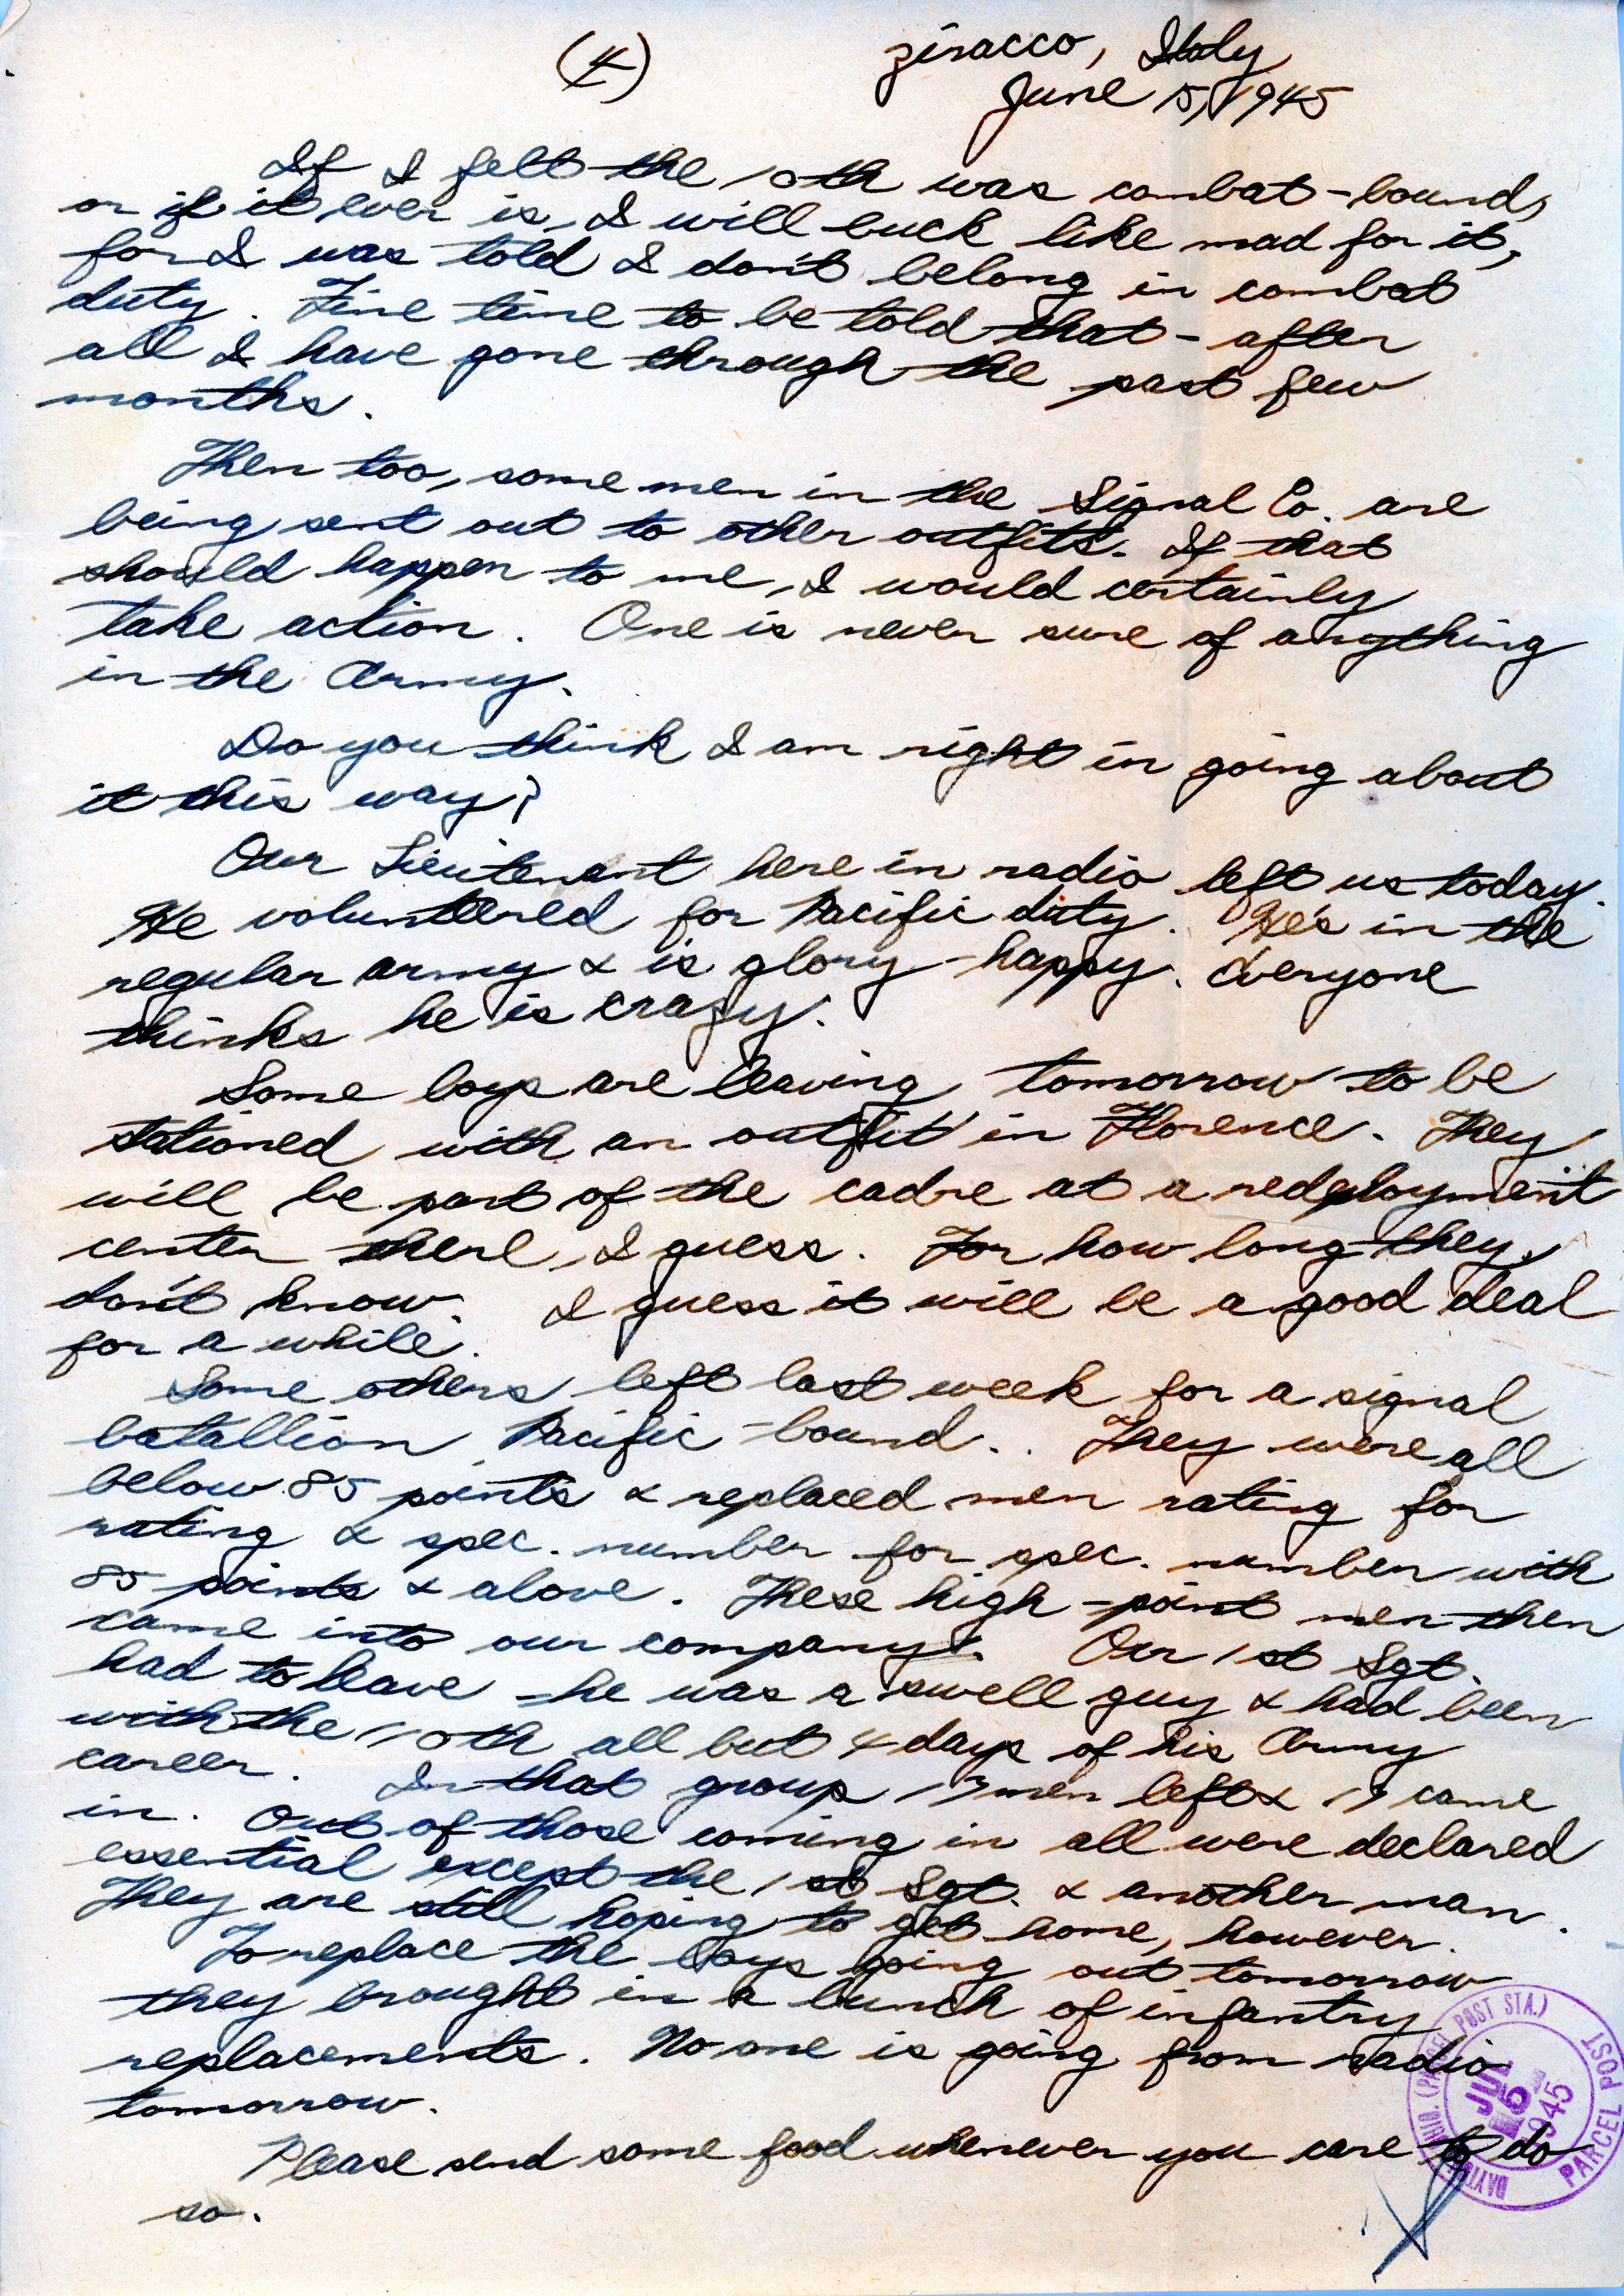 (4)
Ziracco, Italy
June 15, 1945
If I felt the 10th was combat-bound,
or if it ever is, I will buck like mad for it,
for I was told I don't belong in combat
duty. Fine time to be told that - after
all I have gone through the past few
months.
Then too, some men in the Signal Co. are
being sent out to other outfits. If that
should happen to me, I would certainly
take action. One is never sure of anything
in the Army.
Do you think I am right in going about
it this way?
Our Lieutenant here in radio left us today.
He volunteered for Pacific duty. He's in the
regular army & is glory-happy. Everyone
thinks he is crazy.
Some boys are leaving tomorrow to be
stationed with an outfit in Florence. They
will be part of the cadre at a redeployment
center there, I guess. For how long they
don't know. I guess it will be a good deal
for a while.
Some others left last week for a signal
batallion Pacific-bound.. They were all
below 85 points & replaced men rating for
rating & spec. number for spec. number with
85 points & above. These high-point men then
came into our company. Our 1st Sgt.
had to leave - he was a swell guy & had been
with the 10th all but 4 days of his Army
career. In that group men left & came
in. Out of those coming in all were declared
essential except the 1st Sgt. & another man.
They are still hoping to get home, however.
To replace the boys going out tomorrow
they brought in a bunch of infantry
replacements. No one is going from radio
tomorrow.
Please send some food whenever you care to do
so.
DAYTON, OHIO. (PARCEL POST STA.)
JUL
6
1945
PARCEL POST